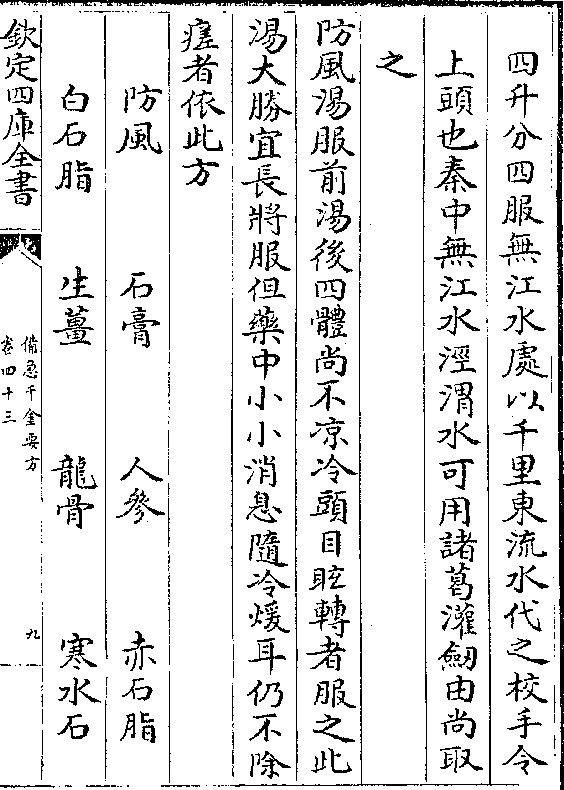 四升分四服無江水處以千里東流水代之校手令
上頭也秦中無江水涇渭水可用諸葛灌劒由尚取
之
防風湯服前湯後四體尚不凉冷頭目眩轉者服之此
湯大勝宜長將服但藥中小小消息隨冷煖耳仍不除
瘥者依此方
防風 石膏 人參 赤石脂
白石脂 生薑 龍骨 寒水石
欽定四庫全書
備急千金要方
卷四十三
九